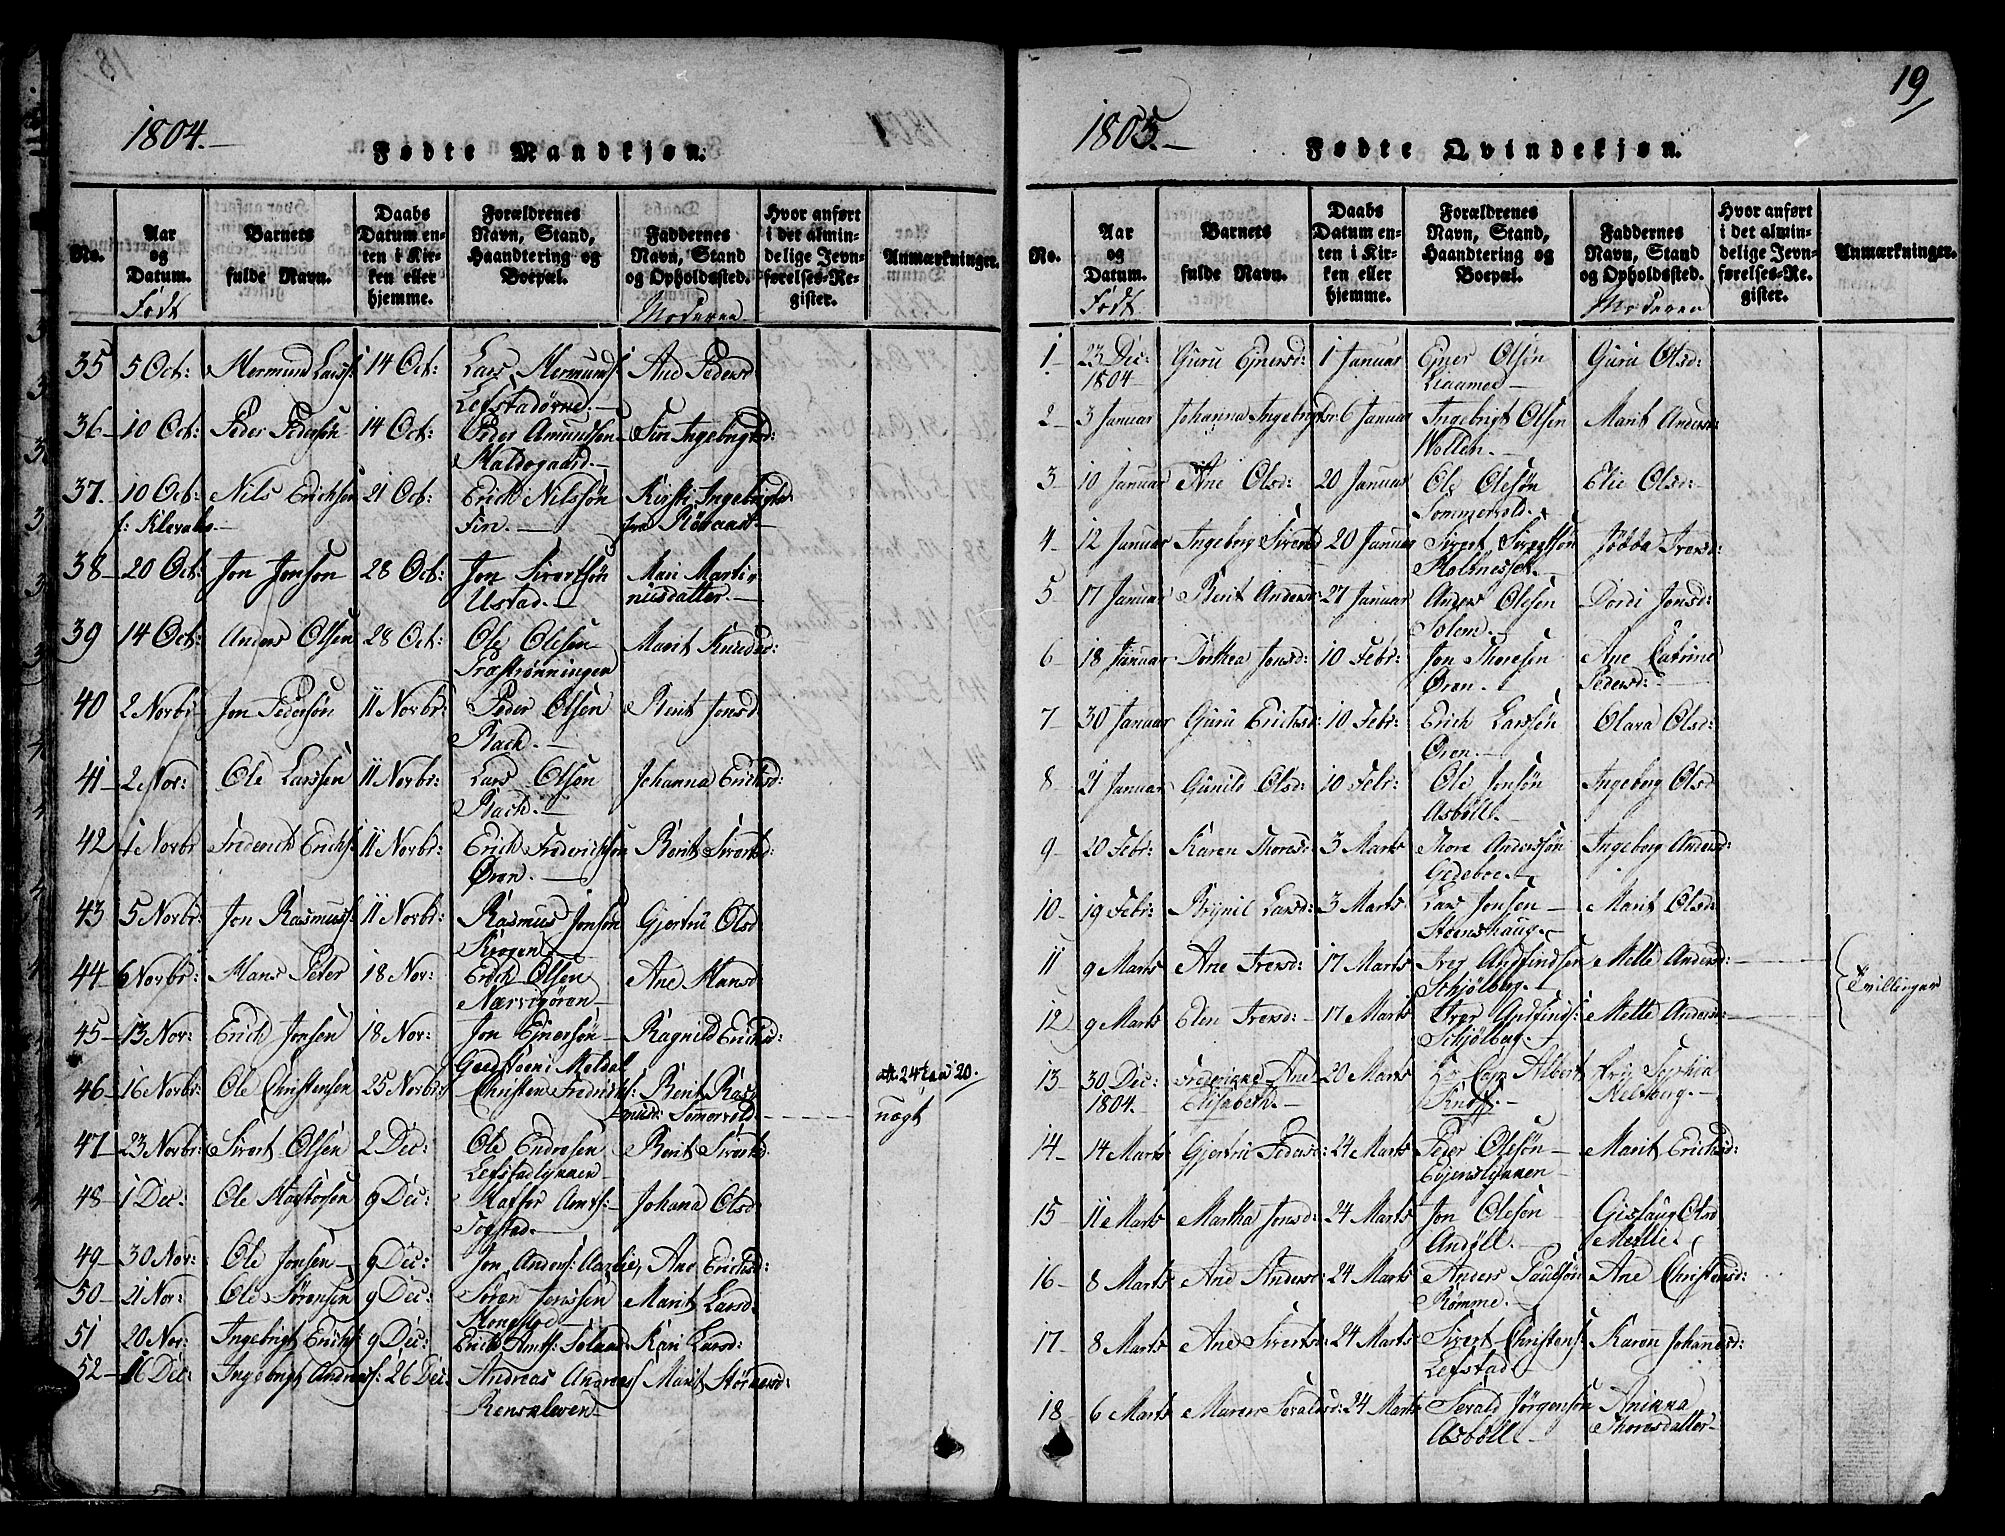 1804.
Fødte Mandkjøn.
No.
Aar og Datum.
Født
Barnets fulde Navn.
Daabs Datum enten i Kirken eller hjemme.
Forældrenes Navn, Stand, Haandtering og Boepæl.
Faddernes Navn, Stand og Opholdssted.
Moderen
Hvor anført i det almindelige Jevnførelses-Register.
Anmærkninger.
35 5 Oct: Mermund Larss: 14 Oct: Lars Mermunds: Ane Pedersd
Lefstadørne.
36 10 Oct: Peder Pedersøn 14 Oct: Peder Amundsen Siri Ingebrigtsd:
Haldogaard.
37. 10 Oct: Nils Erichsen 21 Oct: Erich Nilssøn Kirsti Ingebrigtsd:
Fin.
38 20 Oct: Jon Jonsøn 28 Oct: Jon Sivertsøn Mari Marti-
Ustad. nusdatter.
39 14 Oct: Anders Olsen 28 Oct: Ole Olesen Marit Knudsd:
Træstrønningen
40 2 Novbr Jon Pedersøn 11 Novbr: Peder Olsen Berit Jonsd
Bach.
41 2 Nov: Ole Larssen 11 Novbr: Lars Olsen Johanna Erichsd:
Bach.
42 1 Novbr Frederich Erichs: 11 Novbr: Erich Frederichsøn Berit Sivertsd:
Øran.
43 5 Novbr: Jon Rasmuss: 11 Novbr: Rasmus Jonsøn Gjertru Olsd
Krogen
44 6 Novbr: Hans Peter 18 Nov: Erich Olsen Ane Hansd
Nærvigøren
45 13 Nov: Erich Jonsen 18 Nov: Jon Ejnersøn Ragnild Erichsd:
i Meldal
46 16 Novbr Ole Christensen 25 Novbr: Christen Fredrichs: Berit Ras-
musd: Sommervold.
24 20.
nægt
47 23 Novbr: Sivert Olsen 2 Dec: Ole Endresen Berit Sivertsd
Lefstadlykken
48 1 Dec: Ole Haftorsen 9 Dec: Haftor Amts: Johana Olsd
Fogstad.
49 30 Nov: Ole Jonsen 9 Dec: Jon Anders: Aarlie, Ane Erichsd:
50 21 Nov: Ole Sørensen 9 Dec: Søren Jenssen Marit Larsd:
51 20 Nov: Ingebrigt Erichs: 9 Dec: Erich Amts: Kari Larsd:
52 16 Dec: Ingebrigt Andreas: 26 Dec: Andreas Andreas: Marit
Rensaleven
19
1805.
Fødte Qvindekjøn.
No.
Aar og Datum.
Født
Barnets fulde Navn.
Daabs Datum enten i Kirken eller hjemme.
Forældrenes Navn, Stand, Haandtering og Boepæl.
Faddernes Navn, Stand og Opholdssted.
Moderen
Hvor anført i det almindelige Jevnførelses-Register.
Anmærkninger.
1 23 Dec: Guru Ejnersd: 1 Januar Ejner Olsøn Guru Olsd:
1804 Liaamoe
2 3 Januar Johanna Ingebrigtsd: 6 Januar Ingebrigt Olsen Marit Andersd:
Wollen.
3 10 Januar Ane Olsd: 20 Januar Ole Olesøn Elie Olsd:
Sommervold.
4 12 Januar Ingeborg Siversd 20 Januar Sivert Sivertsøn Jøbba Iversd:
Holmesset.
5 17 Januar Berit Andersd 27 Januar Anders Olesen Dordi Jonsd:
Solem.
6 18 Januar Dorthea Jonsd: 10 Febr: Jon Thoresen Ane Catrine
Øran. Pedersd:
7 30 Januar Guru Erichsd: 10 Febr: Erich Larsøn Olava Olsd:
Øran.
8 21 Januar Gunild Olsd: 10 Febr: Ole Jonsøn Ingeborg Olsd
Asbøll.
9 20 Febr: Karen Thoresd: 3 Marts Thore Anderssøn Ingeborg Andersd:
Gedeboe.
10 19 Febr: Brynil Larsd: 3 Marts Lars Jonsen Marit Olsd:
Steenshaug.
11 9 Marts Ane Iversd: 17 Marts Iver Andfindsen Mette Andersd:
Schjølberg.
12 9 Marts Elen Iversd: 17 Marts Iver Andfinds: Mette Andersd:
Schjølberg.
Tvillinger
13 30 Dec: Frederikke Ane 20 Marts Hr Capt Albert Frue Sophia
1804. Elisabeth. Knoff. Helsberg.
14 14 Marts Gjertru Pedersd: 24 Marts Peder Olesøn Marit Erichsd:
Evjenslykken
15 11 Marts Martha Jonsd: 24 Marts Jon Olesøn Gislaug Olsd
Andøll. Melbe.
16 8 Marts Ane Andersd: 24 Marts Anders Paulsøn Ane Christensd:
Rømme.
17 8 Marts Ane Sivertsd: 24 Marts Sivert Christens: Karen Johannesd:
Lefstad
18 6 Marts Maren Seraldsd: 24 Marts Serald Jørgensøn Aninna
Asbøll. Thoresdatter